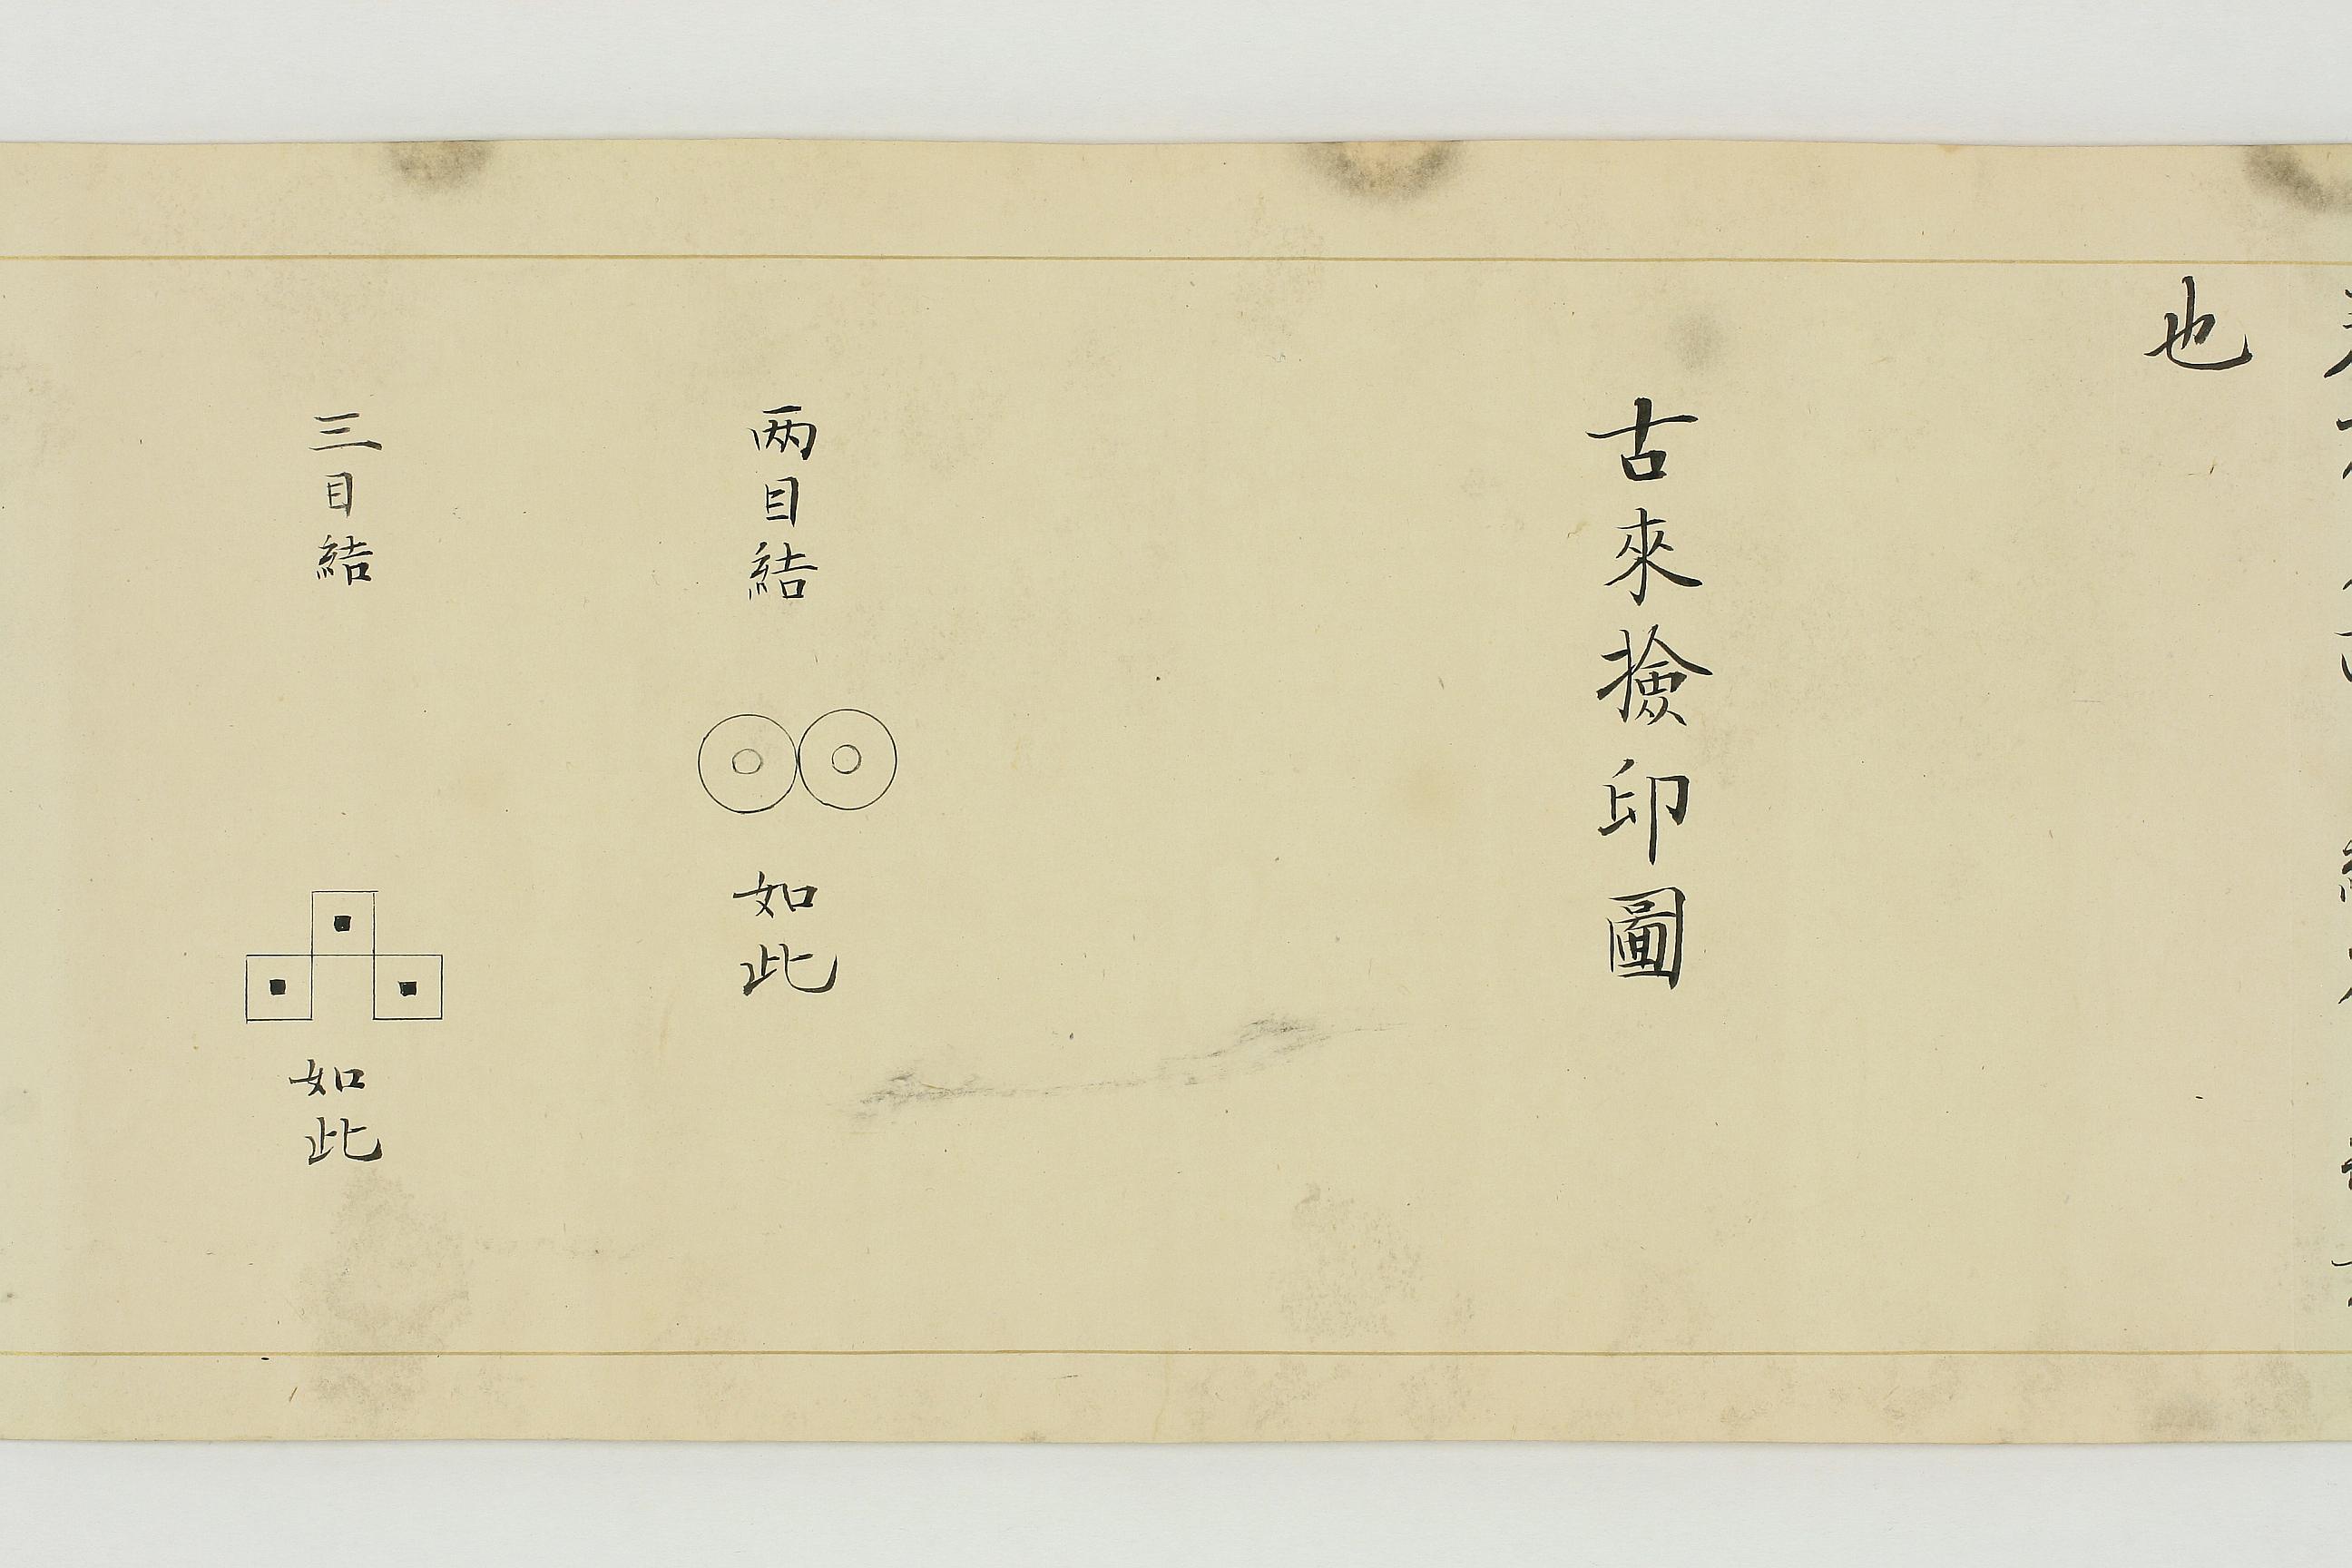 也
古來撿印圖
両目結
如此
三目結
如此